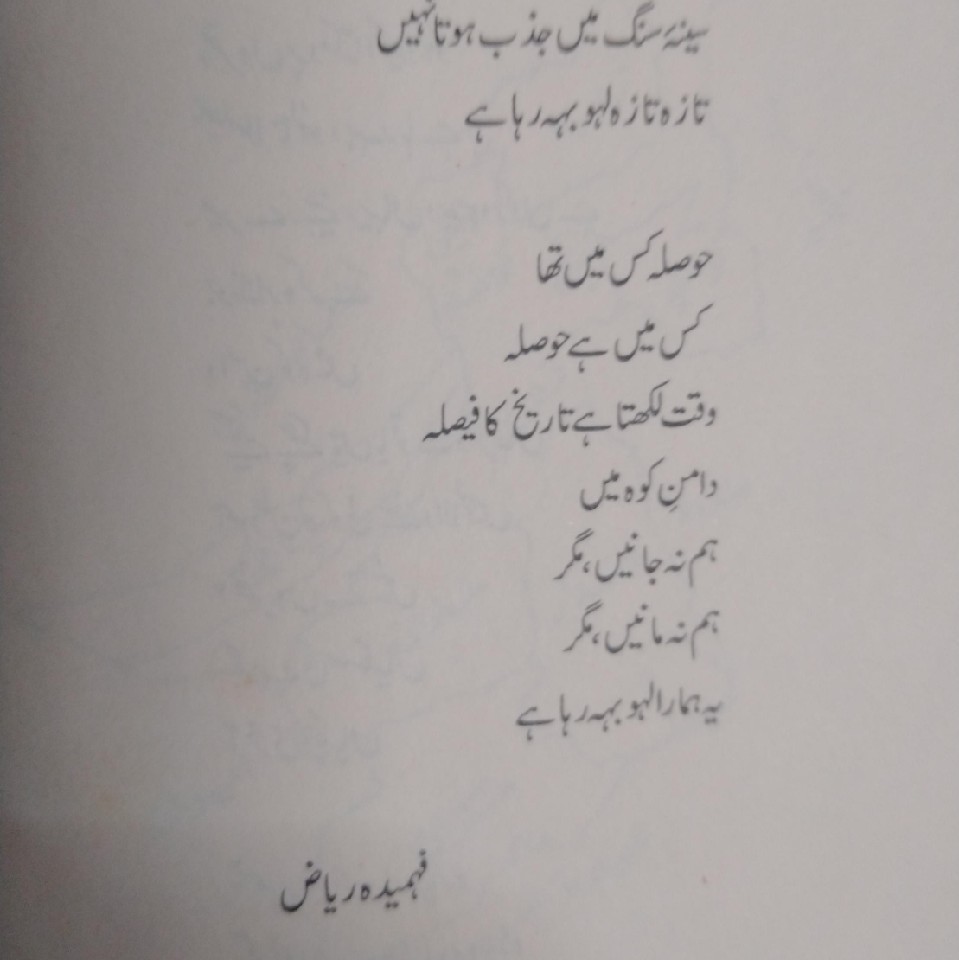 سینۂ سنگ میں جذب ہوتا نہیں
تازہ تازہ لہو بہہ رہا ہے
حوصلہ کس میں تھا
کس میں ہے حوصلہ
وقت لکھتا ہے تاریخ کا فیصلہ
دامنِ کوہ میں
ہم نہ جانیں، مگر
ہم نہ مانیں، مگر
یہ ہمارا لہو بہہ رہا ہے
فہمیدہ ریاض